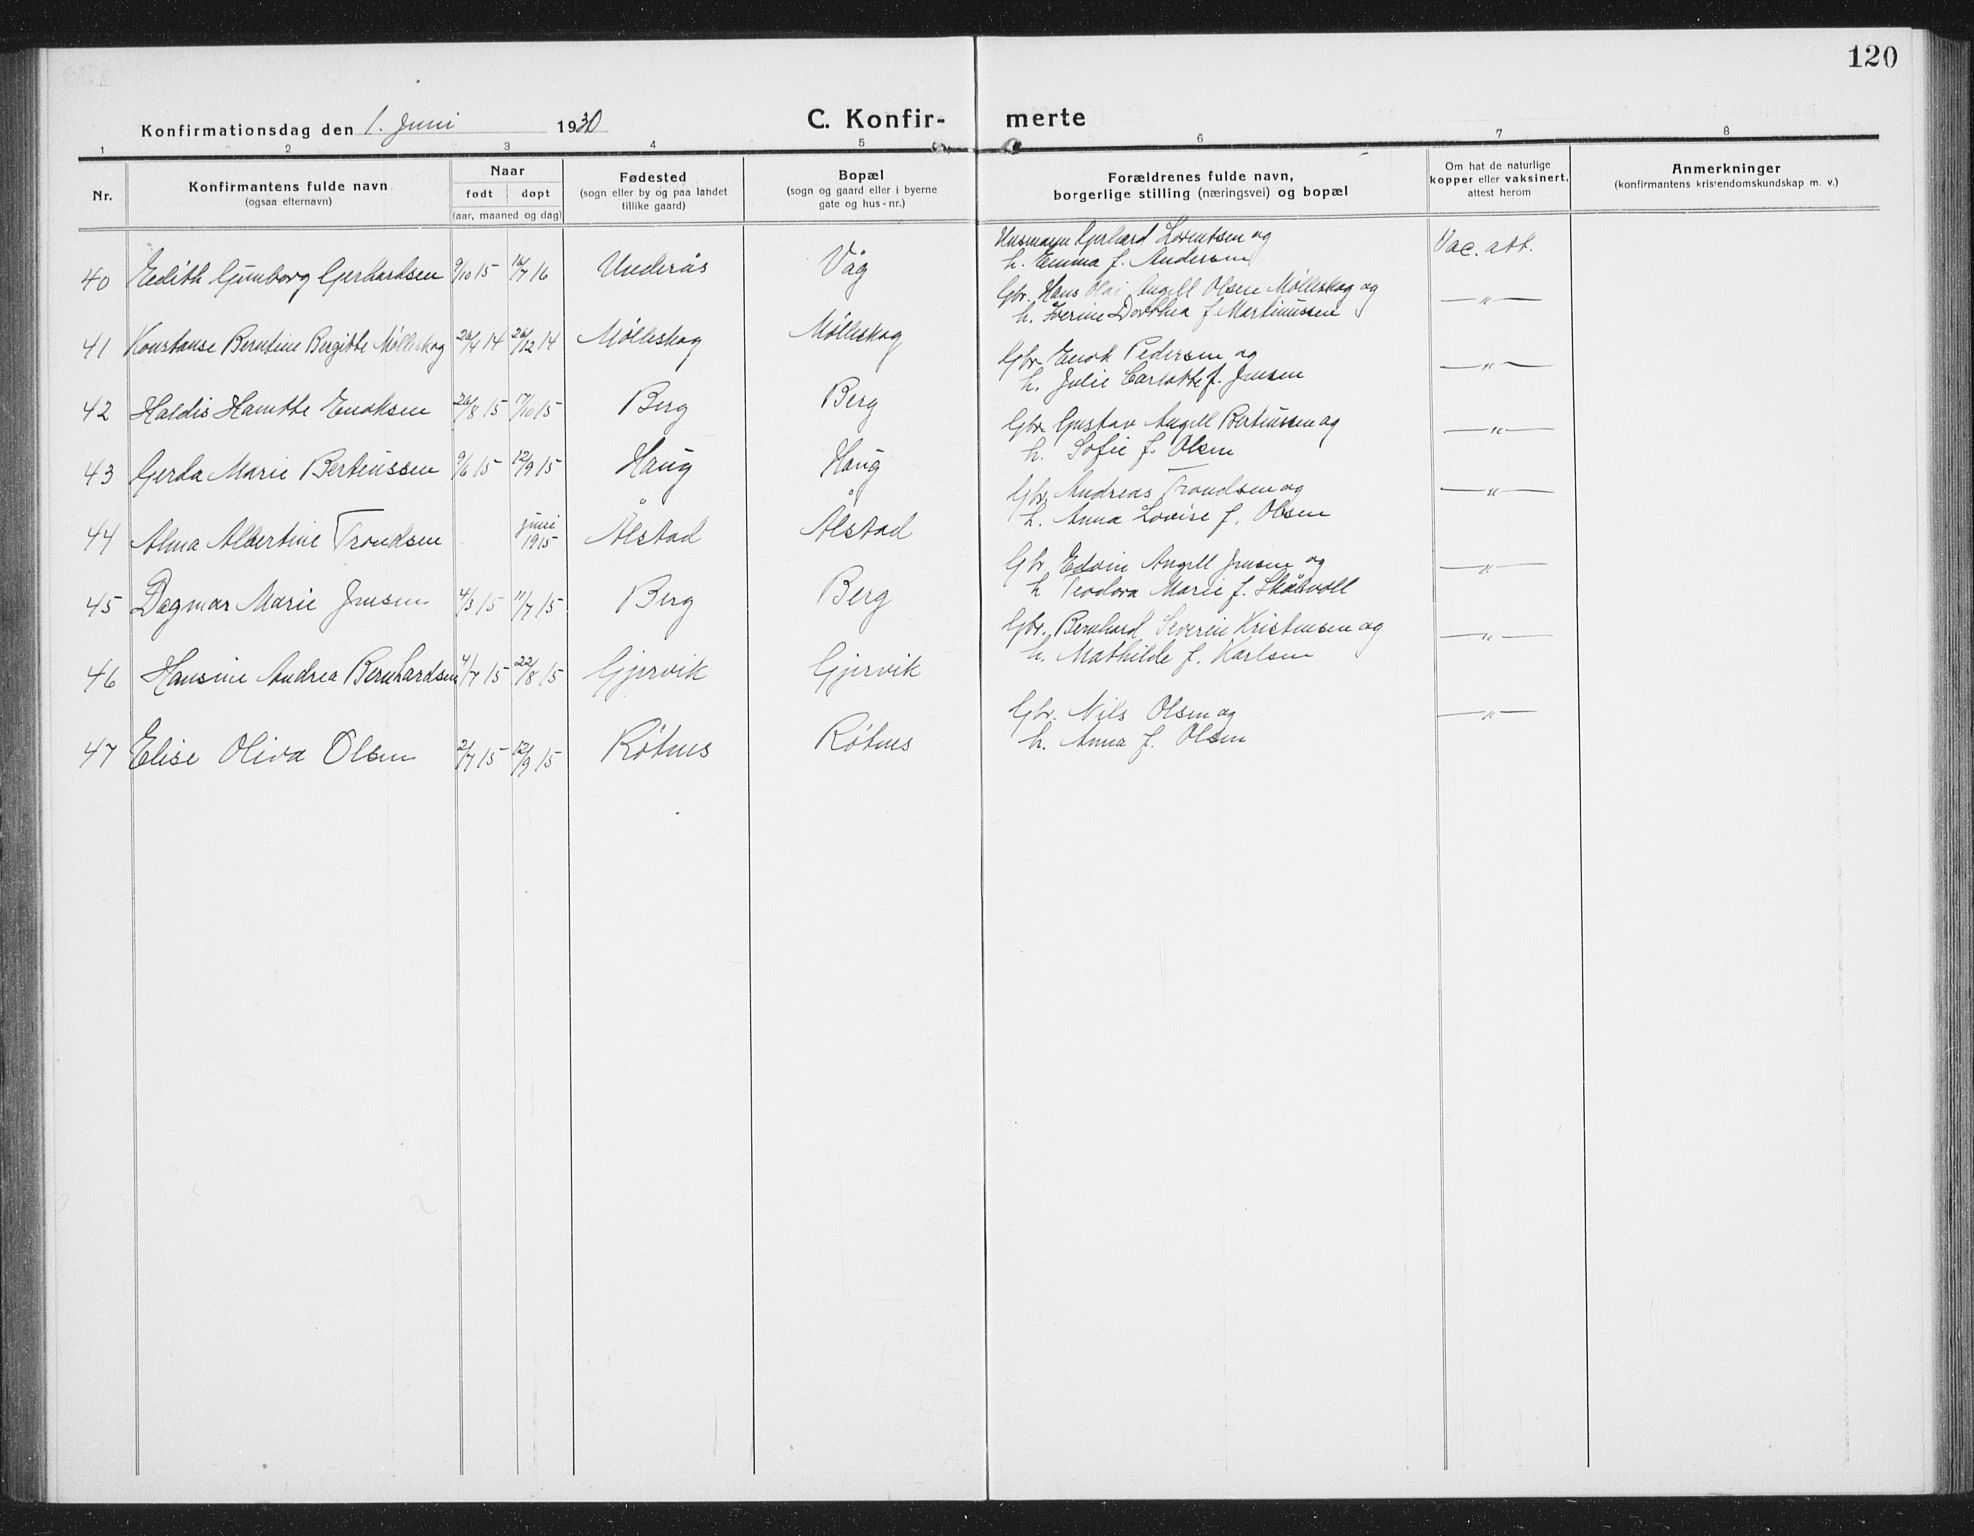 120
Konfirmationsdag den 1. Juni 1930
C. Konfir- merte
1 2 3 4 5 6 7 8
Nr.
Konfirmantens fulde navn
(ogsaa efternavn)
Naar
født døpt
(aar, maaned og dag)
Fødested
(sogn eller by og paa landet
tillike gaard)
Bopæl
(sogn og gaard eller i byerne
gate og hus-nr.)
Forældrenes fulde navn,
borgerlige stilling (næringsvei) og bopæl
Om hat de naturlige
kopper eller vaksinert,
attest herom
Anmerkninger
(konfirmantens kristendomskundskap m. v.)
40 Edith Gunborg Gerhardsen 9/10 15 16/7 16 Underås Våg
Husmann Gerhard Lorentsen og
h. Emma f. Andersen
Vac. att.
41 Konstanse Berntine Bergitte Mølleskog 26/4 14 26/12 14 Mølleskog Mølleskog
Gbr. Hans Olai Angell Olsen Mølleskog og
h. Iverine Dorthea f. Martinussen
—"—
42 Haldis Hanette Enoksen 26/8 15 17/10 15 Berg Berg
Gbr. Enok Pedersen og
h. Julie Carlotte f. Jensen
—"—
43 Gerda Marie Bertinssen 9/6 15 12/9 15 Haug Haug
Gbr. Gustav Angell Bertinssen og
h. Sofie f. Olsen
—"—
44 Alma Albertine Trondsen juni 1915 Ålstad Ålstad
Gbr. Andreas Trondsen og
h. Anna Lovise f. Olsen
—"—
45 Dagmar Marie Jensen 4/3 15 11/7 15 Berg Berg
Gbr. Edvin Angell Jensen og
h. Teodora Marie f. Skåvoll
—"—
46 Hansine Andrea Bernhardsen 4/7 15 22/8 15 Gjervik Gjervik
Gbr. Bernhard Severin Kristensen og
h. Mathilde f. Karlsen
—"—
47 Elise Oliva Olsen 2/7 15 12/9 15 Røtnes Røtnes
Gbr. Nils Olsen og
h. Anna f. Olsen
—"—